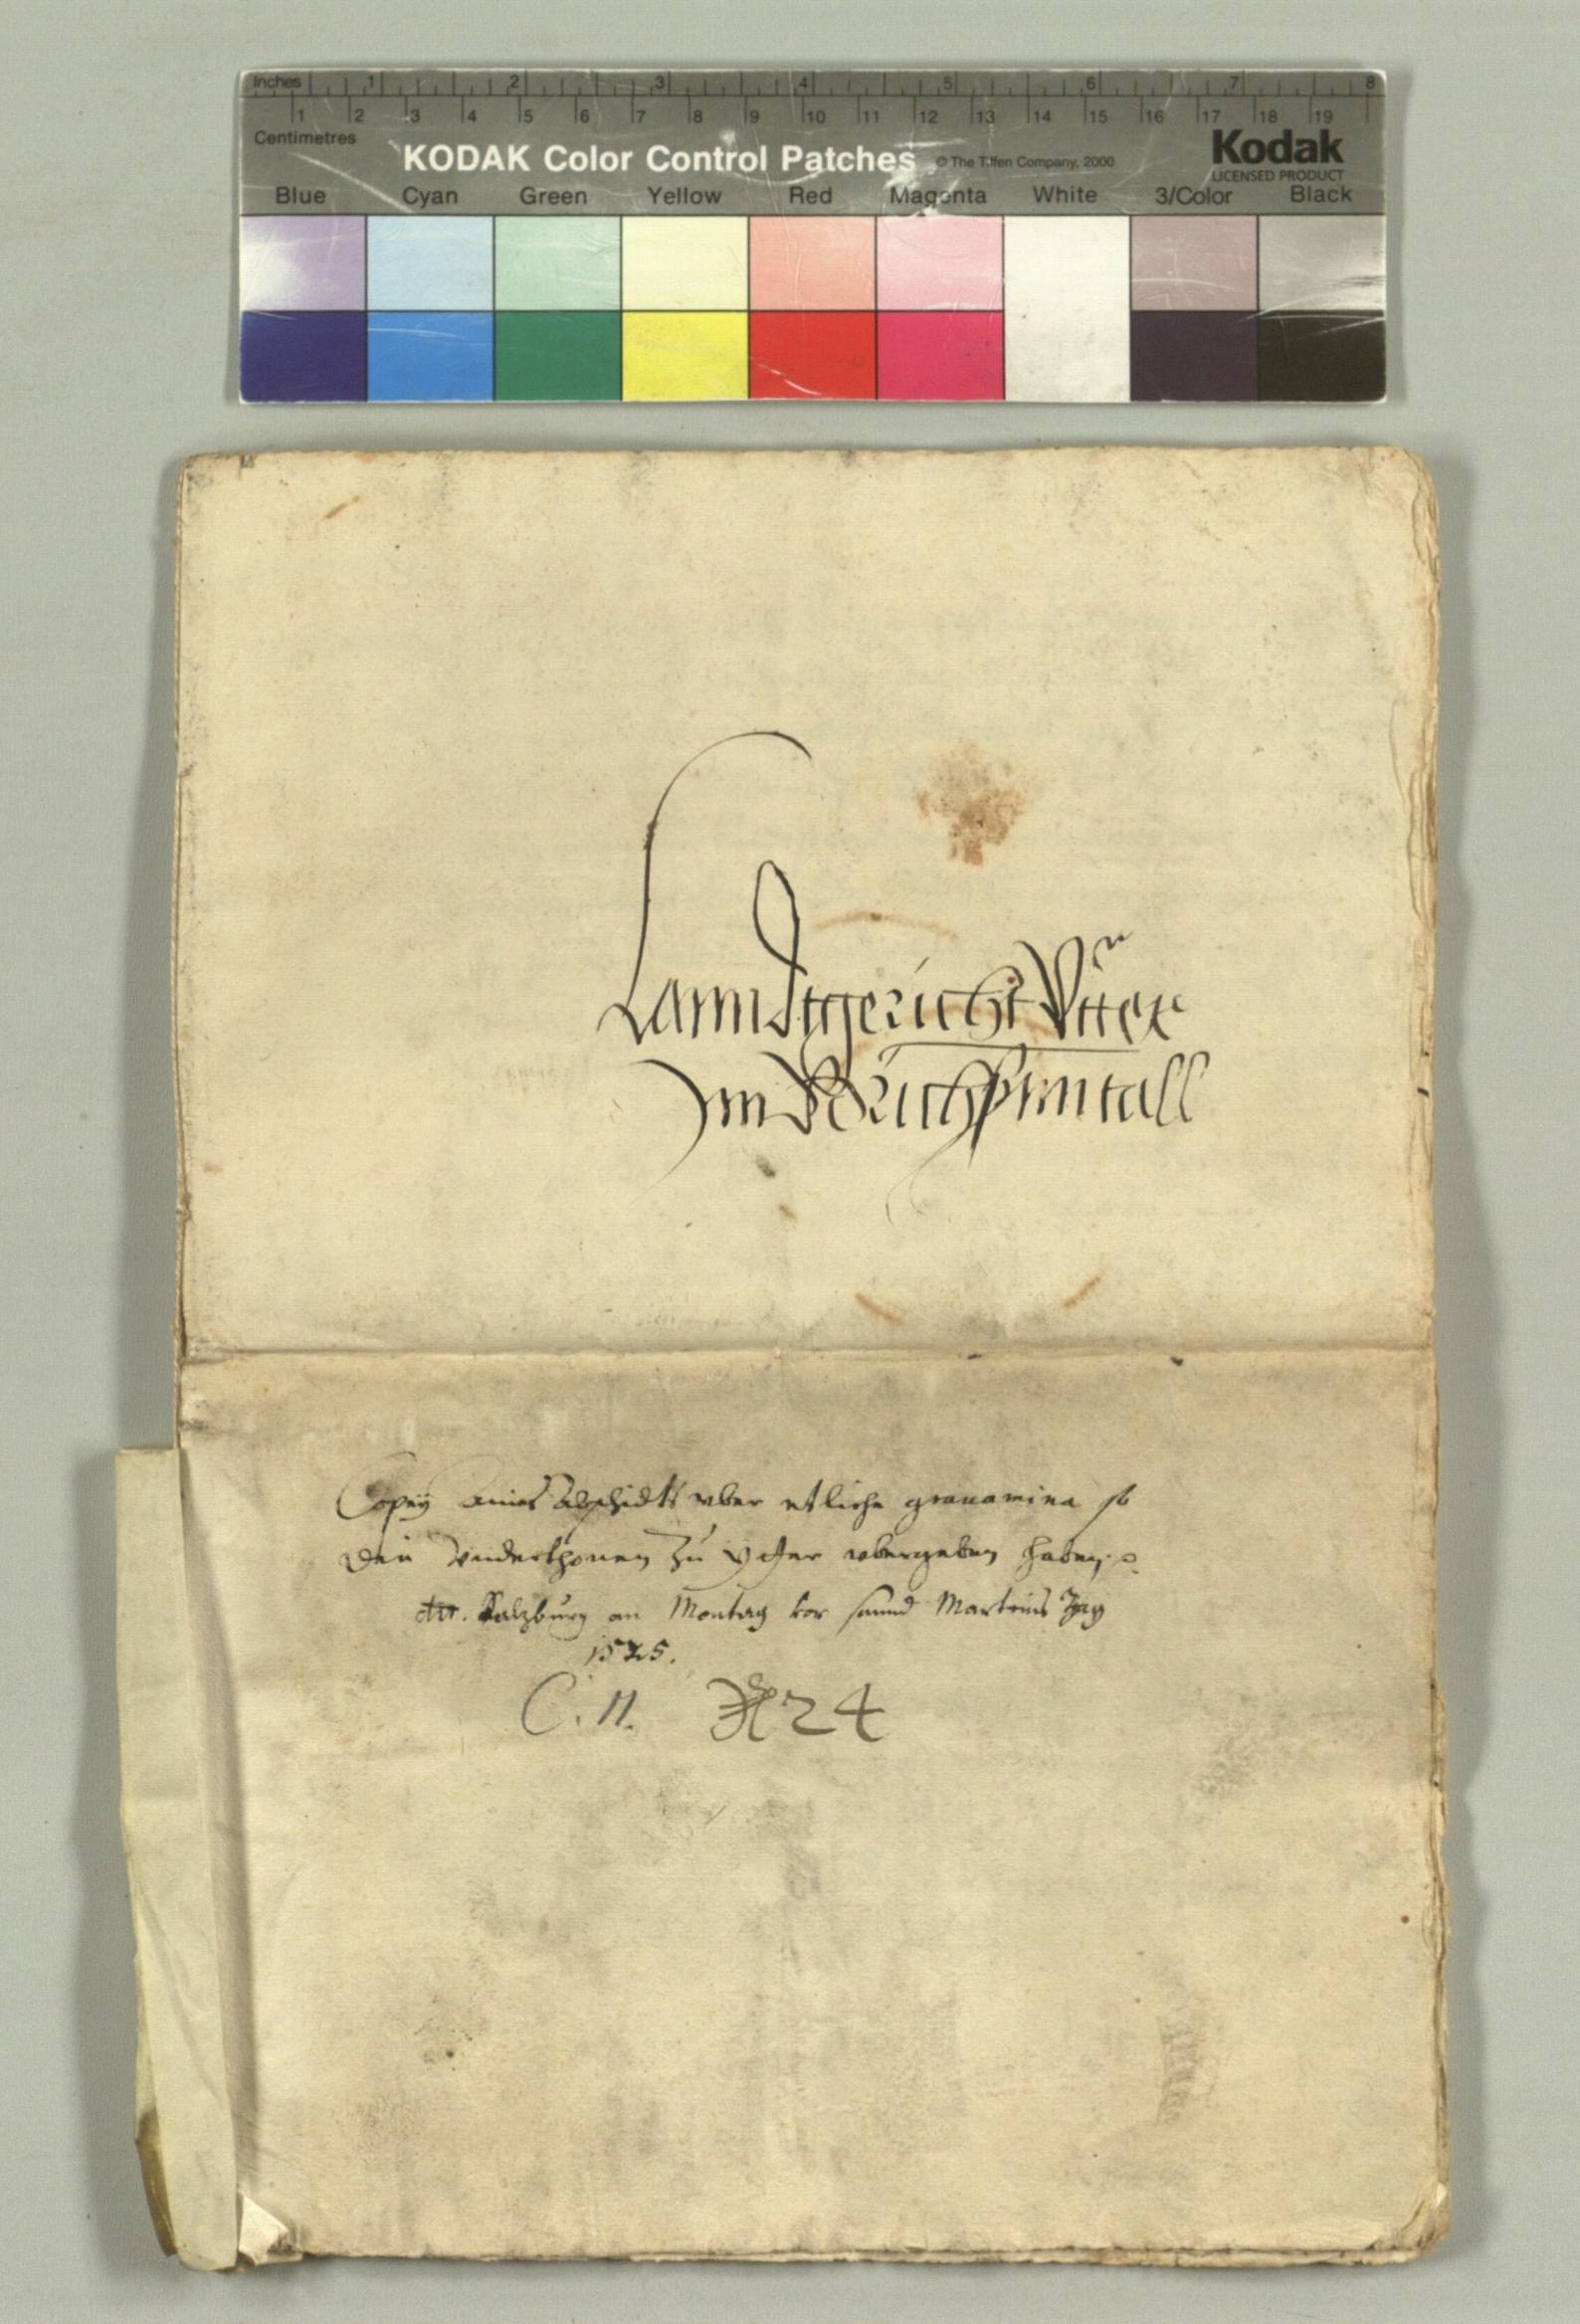 Inches 1 2 3 4 5 6 7 8
1 2 3 4 5 6 7 8 9 10 11 12 13 14 15 16 17 18 19
Centimetres
KODAK Color Control Patches © The Tiffen Company, 2000 Kodak
LICENSED PRODUCT
Blue Cyan Green Yellow Red Magenta White 3/Color Black
Lanndtgericht Ytter
Im Brichsenntall
Copey aines Abschidts vber etliche grauamina so
die vnderthonen zu Ytter vbergeben haben
Salzburg an Montag vor sannd Martins Tag
1525.
C. 11. 24